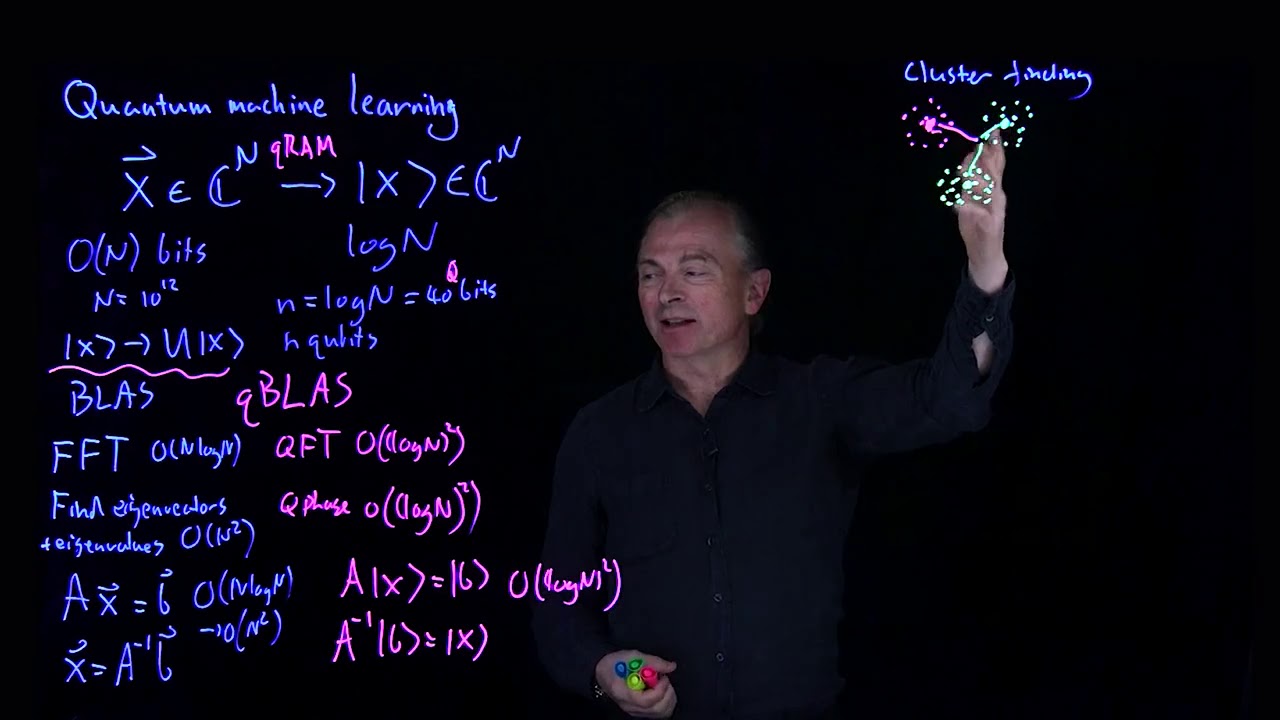 Quantum machine learning
x⃗ ∈ ℂ^N qRAM → |x⟩ ∈ ℂ^N
O(N) bits log N
N = 10^12 n = log N = 40 Qbits
|x⟩ → U|x⟩ n qubits
BLAS qBLAS
FFT O(N log N) QFT O((log N)^2)
Find eigenvectors Q phase O((log N)^2)
+ eigenvalues O(N^2)
A x⃗ = b⃗ O(N log N) A|x⟩ = |b⟩ O((log N)^2)
→ O(N^2)
x⃗ = A^-1 b⃗ A^-1|b⟩ = |x⟩
Cluster finding